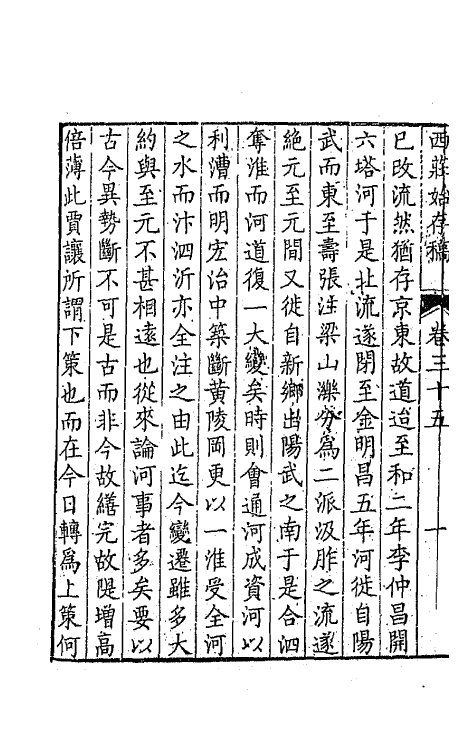 西莊始存稿 卷三十五 一
已改流然猶存京東故道迨至和二年李仲昌開
六塔河于是北流遂閉至金明昌五年河徙自陽
武而東至壽張注梁山濼分爲二派汲胙之流遂
絶元至元間又徙自新鄉出陽武之南于是合泗
奪淮而河道復一大變矣時則會通河成資河以
利漕而明宏治中築斷黃陵岡更以一淮受全河
之水而汴泗沂亦全注之由此迄今變遷雖多大
約與至元不甚相遠也從來論河事者多矣要以
古今異勢斷不可是古而非今故繕完故隄增高
倍薄此賈讓所謂下策也而在今日轉爲上策何